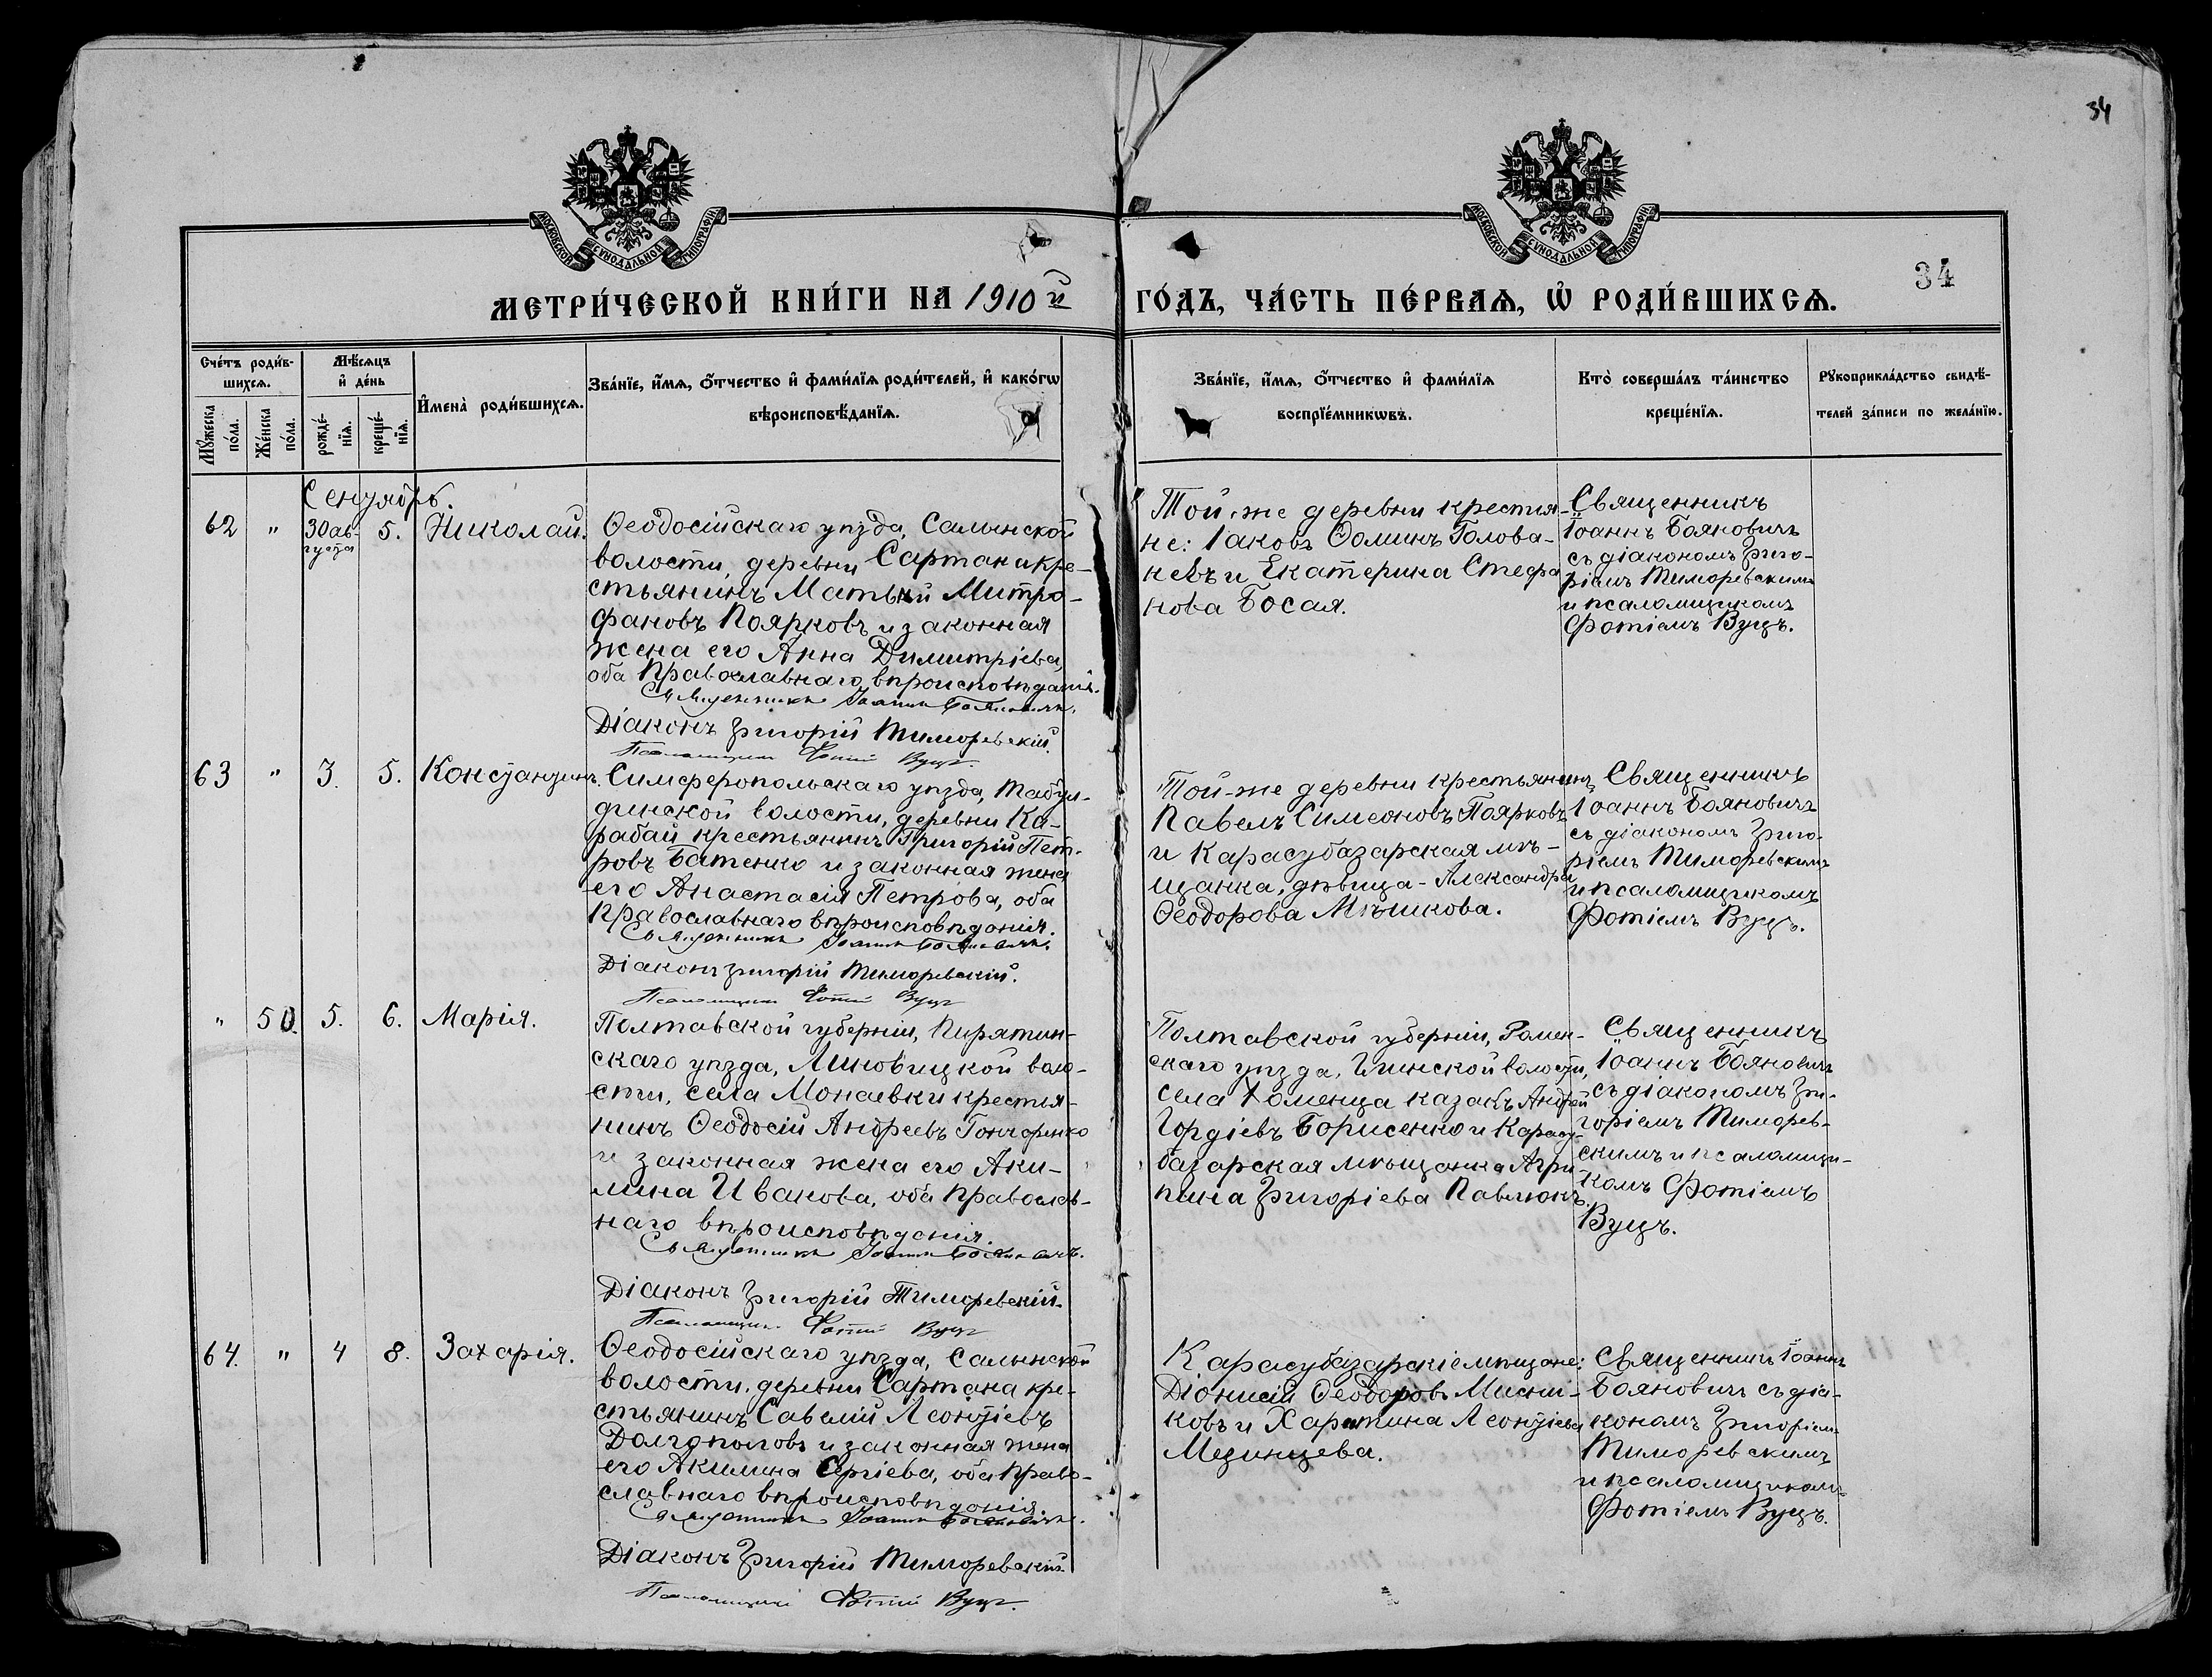 34
МОСКОВСКОЙ СѴНОДАЛЬНОЙ ТИПОГРАФІИ
МОСКОВСКОЙ СѴНОДАЛЬНОЙ ТИПОГРАФІИ
34
МЕТРИ́ЧЕСКОЙ КНИ́ГИ НА 1910й ГО́ДЪ, ЧА́СТЬ ПЕ́РВАѦ, Ѡ҆ РОДИ́ВШИХСѦ.
Сче́тъ роди́в-
шихсѧ.
Мꙋ́жеска
по́ла.
Же́нска
по́ла.
Мѣ́сѧцъ
и҆ де́нь
рожде́-
нїѧ.
креще́-
нїѧ.
И҆мена̀ роди́вшихсѧ.
Зва́нїе, и҆́мѧ, ѻ҆́тчество и҆ фами́лїѧ роди́телей, и҆ како́гѡ
вѣроисповѣ́данїѧ.
Зва́нїе, и҆́мѧ, ѻ҆́тчество и҆ фами́лїѧ
воспрїе́мникѡвъ.
Кто̀ соверша́лъ та́инство
креще́нїѧ.
Рꙋкоприкла́дство свидѣ́-
телей за́писи по жела́нїю.
Сентябрь.
62 " 30 ав-
густа 5. Николай.
Ѳеодосійскаго уѣзда, Салынской
волости, деревни Сартана кре-
стьянинъ Матѳій Митро-
фановъ Поярковъ и законная
жена его Анна Димитріева,
оба Православнаго вѣроисповѣданія.
Священникъ Іоаннъ Бояновичъ.
Діаконъ Григорій Тиморевскій.
Псаломщикъ Фотій Вуцъ.
Той-же деревни крестья-
не: Іаковъ Ѳоминъ Голова-
невъ и Екатерина Стефа
нова Босая.
Священникъ
Іоаннъ Бояновичъ
съ діакономъ Григо-
ріемъ Тиморевскимъ
и псаломщикомъ
Фотіемъ Вуцъ.
63 " 3. 5. Константинъ.
Симферопольскаго уѣзда, Табул-
динской волости, деревни Ка-
рабай крестьянинъ Григорій Пет-
ровъ Батенко и законная жена
его Анастасія Петрова, оба
Православнаго вѣроисповѣданія.
Священникъ Іоаннъ Бояновичъ.
Діаконъ Григорій Тиморевскій.
Псаломщикъ Фотій Вуцъ
Той-же деревни крестьянинъ
Павелъ Симеоновъ Поярковъ
и Карасубазарская мѣ-
щанка, дѣвица - Александра
Ѳеодорова Мѣшкова.
Священникъ
Іоаннъ Бояновичъ
съ діакономъ Григо-
ріемъ Тиморевскимъ
и псаломщикомъ
Фотіемъ Вуцъ.
" 50. 5. 6. Марія.
Полтавской губерніи, Пирятин-
скаго уѣзда, Линовицкой воло-
сти, села Монаевки крестья-
нинъ Ѳеодосій Андреевъ Гончаренко
и законная жена его Аки-
лина Иванова, оба Православ-
наго вѣроисповѣданія.
Священникъ Іоаннъ Бояновичъ.
Діаконъ Григорій Тиморевскій.
Псаломщикъ Фотій Вуцъ
Полтавской губерніи, Ромен-
скаго уѣзда, волости,
села Хоменца казакъ Андрей
Гордіевъ Борисенко и Карасу-
базарская мѣщанка Агри-
пина Григоріева Павлюкъ.
Священникъ
Іоаннъ Бояновичъ
съ діакономъ Гри-
горіемъ Тиморев-
скимъ и псаломщи-
комъ Фотіемъ
Вуцъ.
64. " 4 8. Захарія.
Ѳеодосійскаго уѣзда, Салынской
волости, деревни Сартана кре-
стьянинъ Савелій Леонтіевъ
Долгополовъ и законная жена
его Акилина Сергіева, оба Право-
славнаго вѣроисповѣданія.
Священникъ Іоаннъ Бояновичъ.
Діаконъ Григорій Тиморевскій.
Псаломщикъ Фотій Вуцъ.
Карасубазарскіе мѣщане:
Діонисій Ѳеодоровъ Мисни-
ковъ и Харитина Леонтіева
Мединцева.
Священникъ Іоаннъ
Бояновичъ съ діа-
кономъ Григоріемъ
Тиморевскимъ
и псаломщикомъ
Фотіемъ Вуцъ.